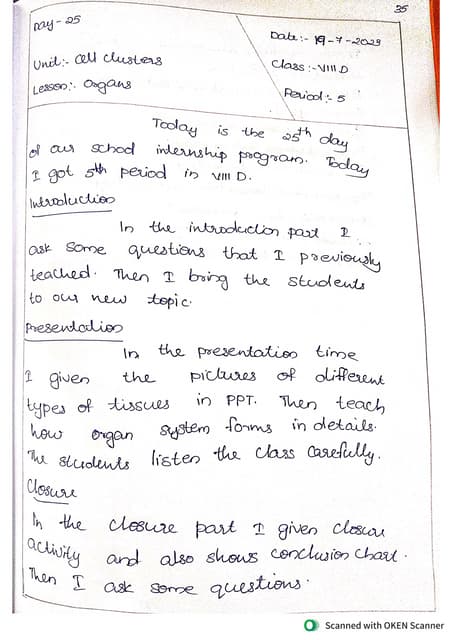 35
Day - 25
Date:- 19-7-2023
Unit:- Cell clusters
Class:- VIII D
Lesson:- Organs
Period:- 5
Today is the 25th day
of our school internship program. Today
I got 5th period in VIII D.
Introduction
In the introduction part I
ask some questions that I previously
teached. Then I bring the students
to our new topic.
Presentation
In the presentation time
I given the pictures of different
types of tissues in PPT. Then teach
how organ system forms in details.
The students listen the class carefully.
Closure
In the closure part I given closure
activity and also shows conclusion chart.
Then I ask some questions.
Scanned with OKEN Scanner